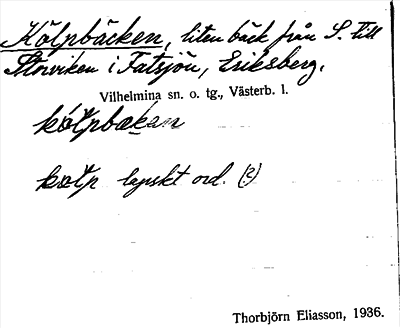 Kölpbäcken, liten bäck från S. till
Storviken i Fatsjön, Eriksberg.
Vilhelmina sn. o. tg., Västerb. l.
kölpbäcken
kölp lapskt ord. (?)
Thorbjörn Eliasson, 1936.